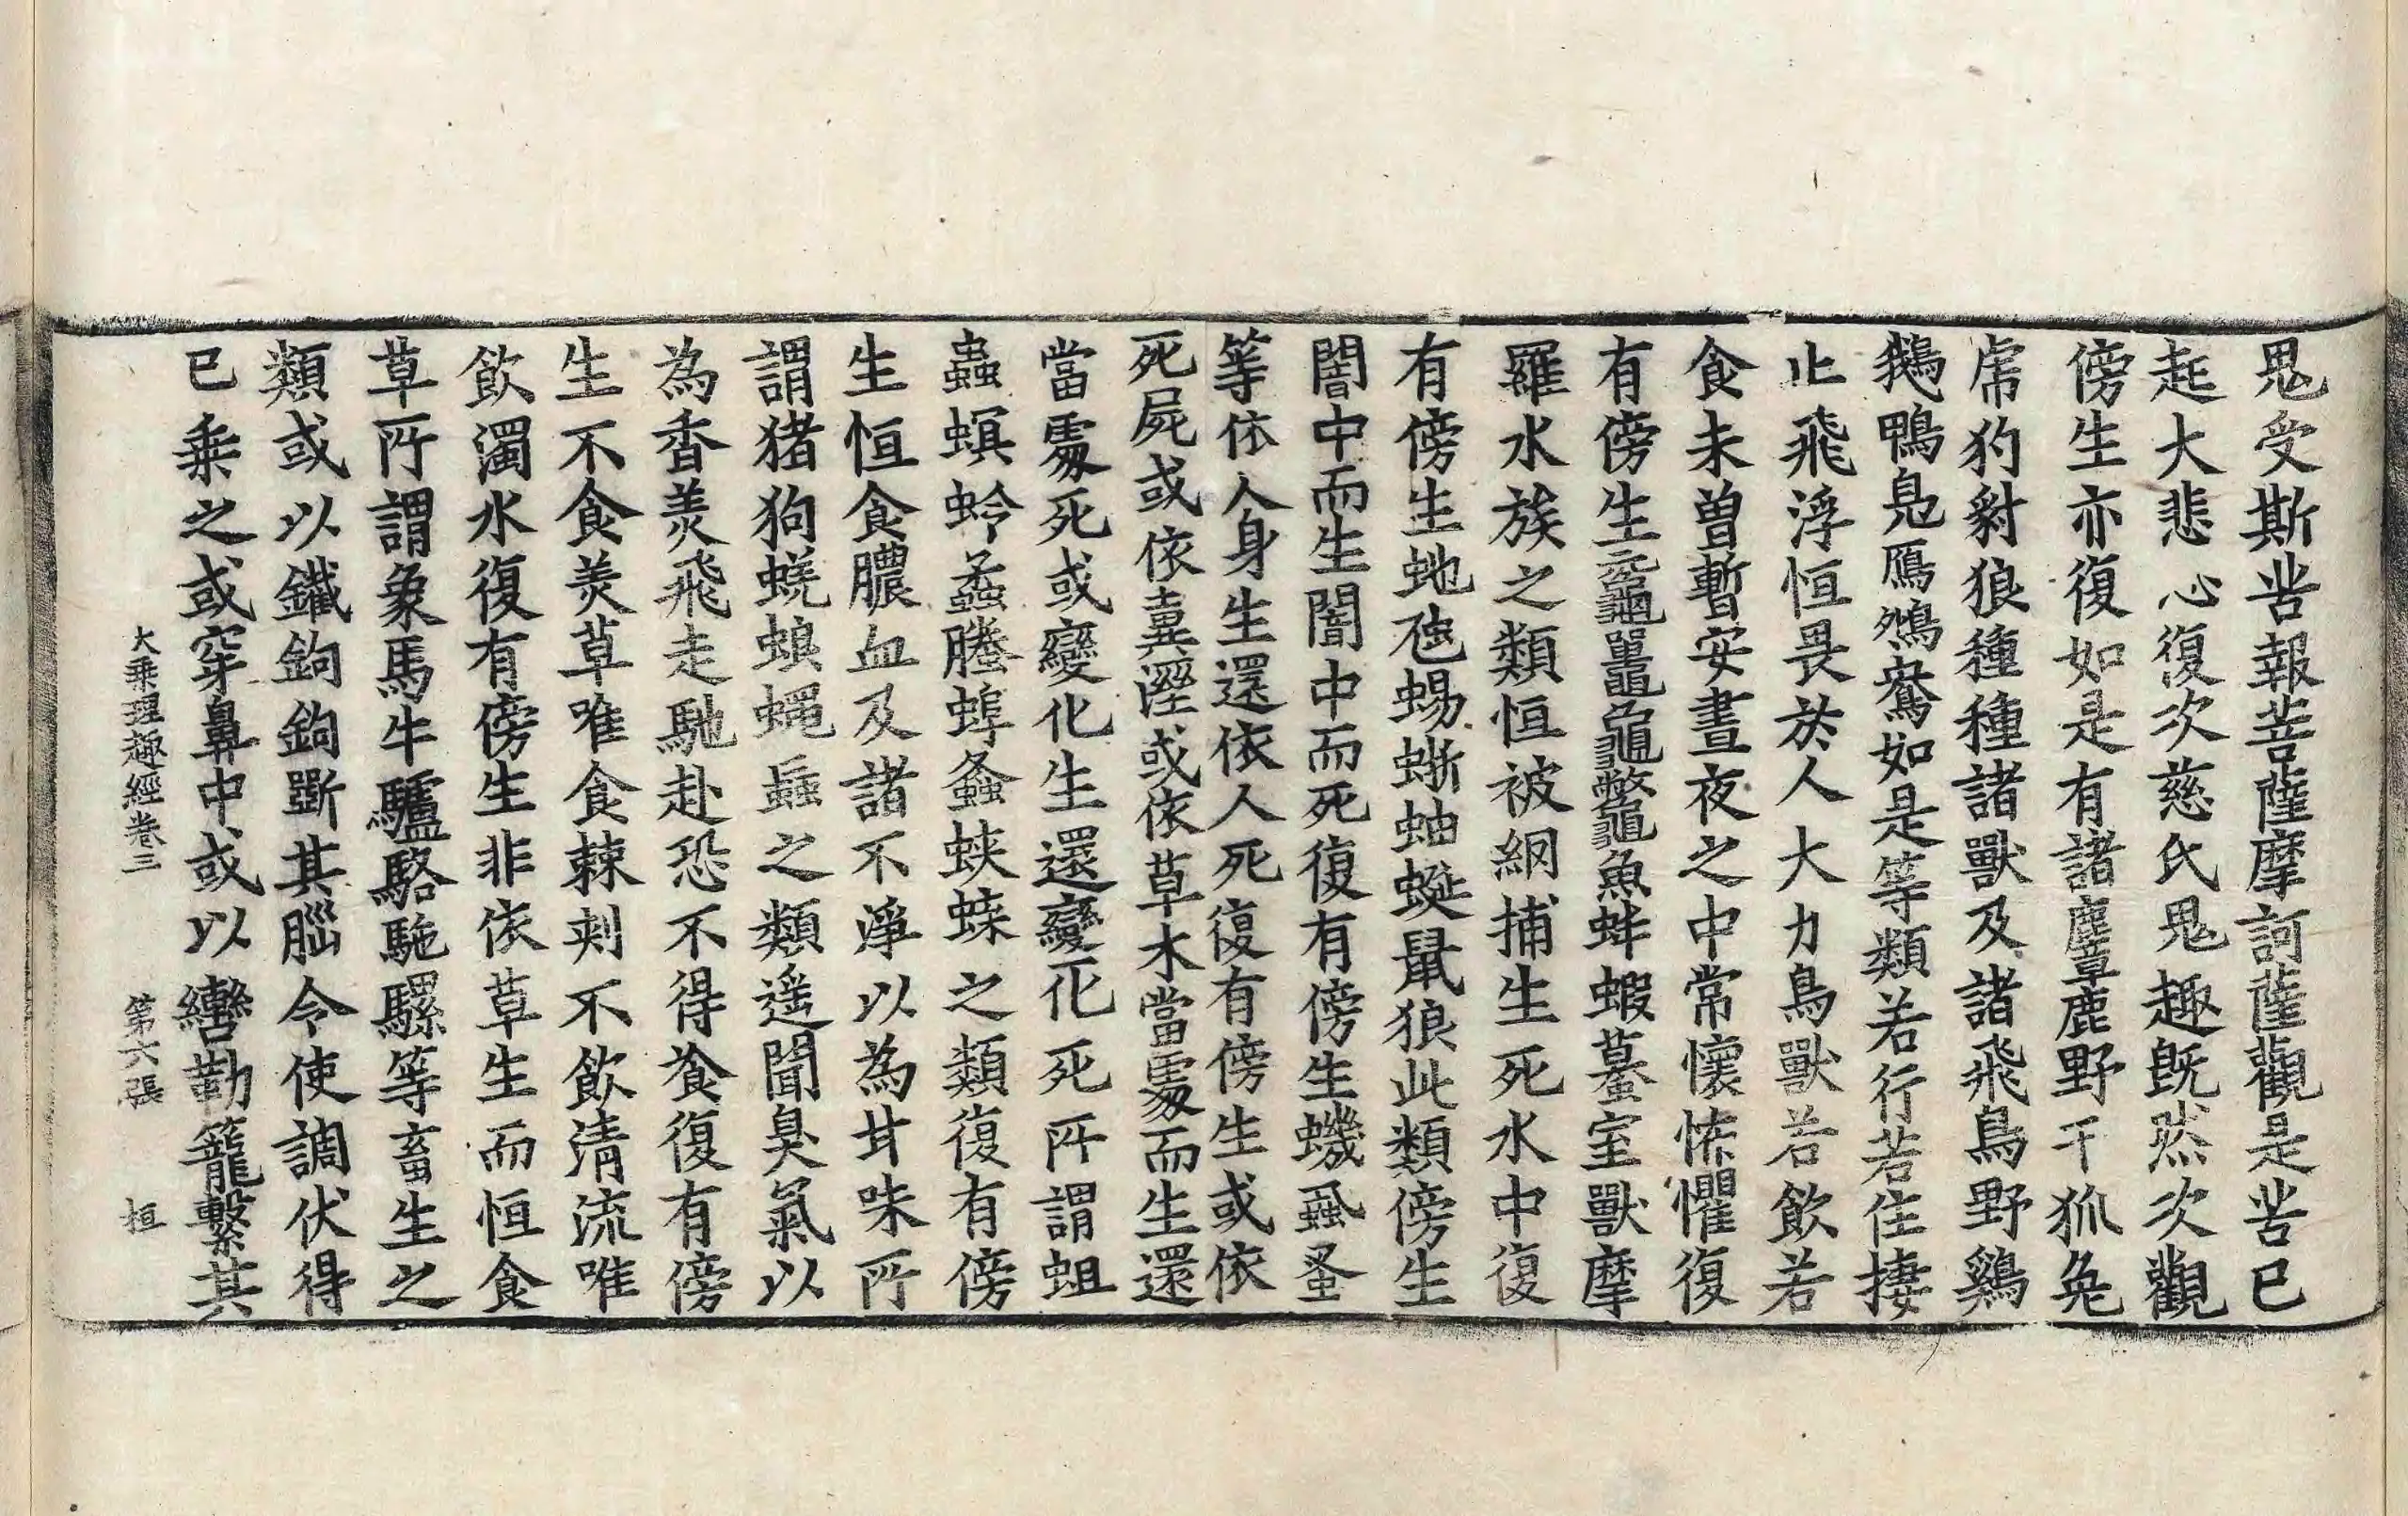 鬼受斯苦報菩薩摩訶薩觀是苦已
起大悲心復次慈氏鬼趣既然次觀
傍生亦復如是有諸麞鹿野干狐兔
虎豹豺狼種種諸獸及諸飛鳥野鷄
鵝鴨鳧鴈鴻鴛如是等類若行若住捿
止飛浮恒畏於人大力鳥獸若飲若
食未曾暫安晝夜之中常懷怖懼復
有傍生黿鼉龜鼈魚蚌蝦蟇室獸摩
羅水族之類恒被網捕生死水中復
有傍生虵虺蜴蜥蚰蜒鼠狼此類傍生
闇中而生闇中而死復有傍生蟣蝨蚤
等依人身生還依人死復有傍生或依
死屍或依糞溼或依草木當處而生還
當處死或變化生還變化死所謂蛆
蟲螟蛉蟊螣蜉螽蛺蝶之類復有傍
生恒食膿血及諸不淨以為甘味所
謂猪狗蜣蜋蠅蝱之類遥聞臭氣以
為香羙飛走馳赴恐不得飡復有傍
生不食羙草唯食棘刺不飲清流唯
飲濁水復有傍生非依草生而恒食
草所謂象馬牛驢駱駞騾等畜生之
類或以鐵鉤鉤斵其腦令使調伏得
已乗之或穿鼻中或以轡勒籠繫其
大乗理趣經卷三　第六張　桓